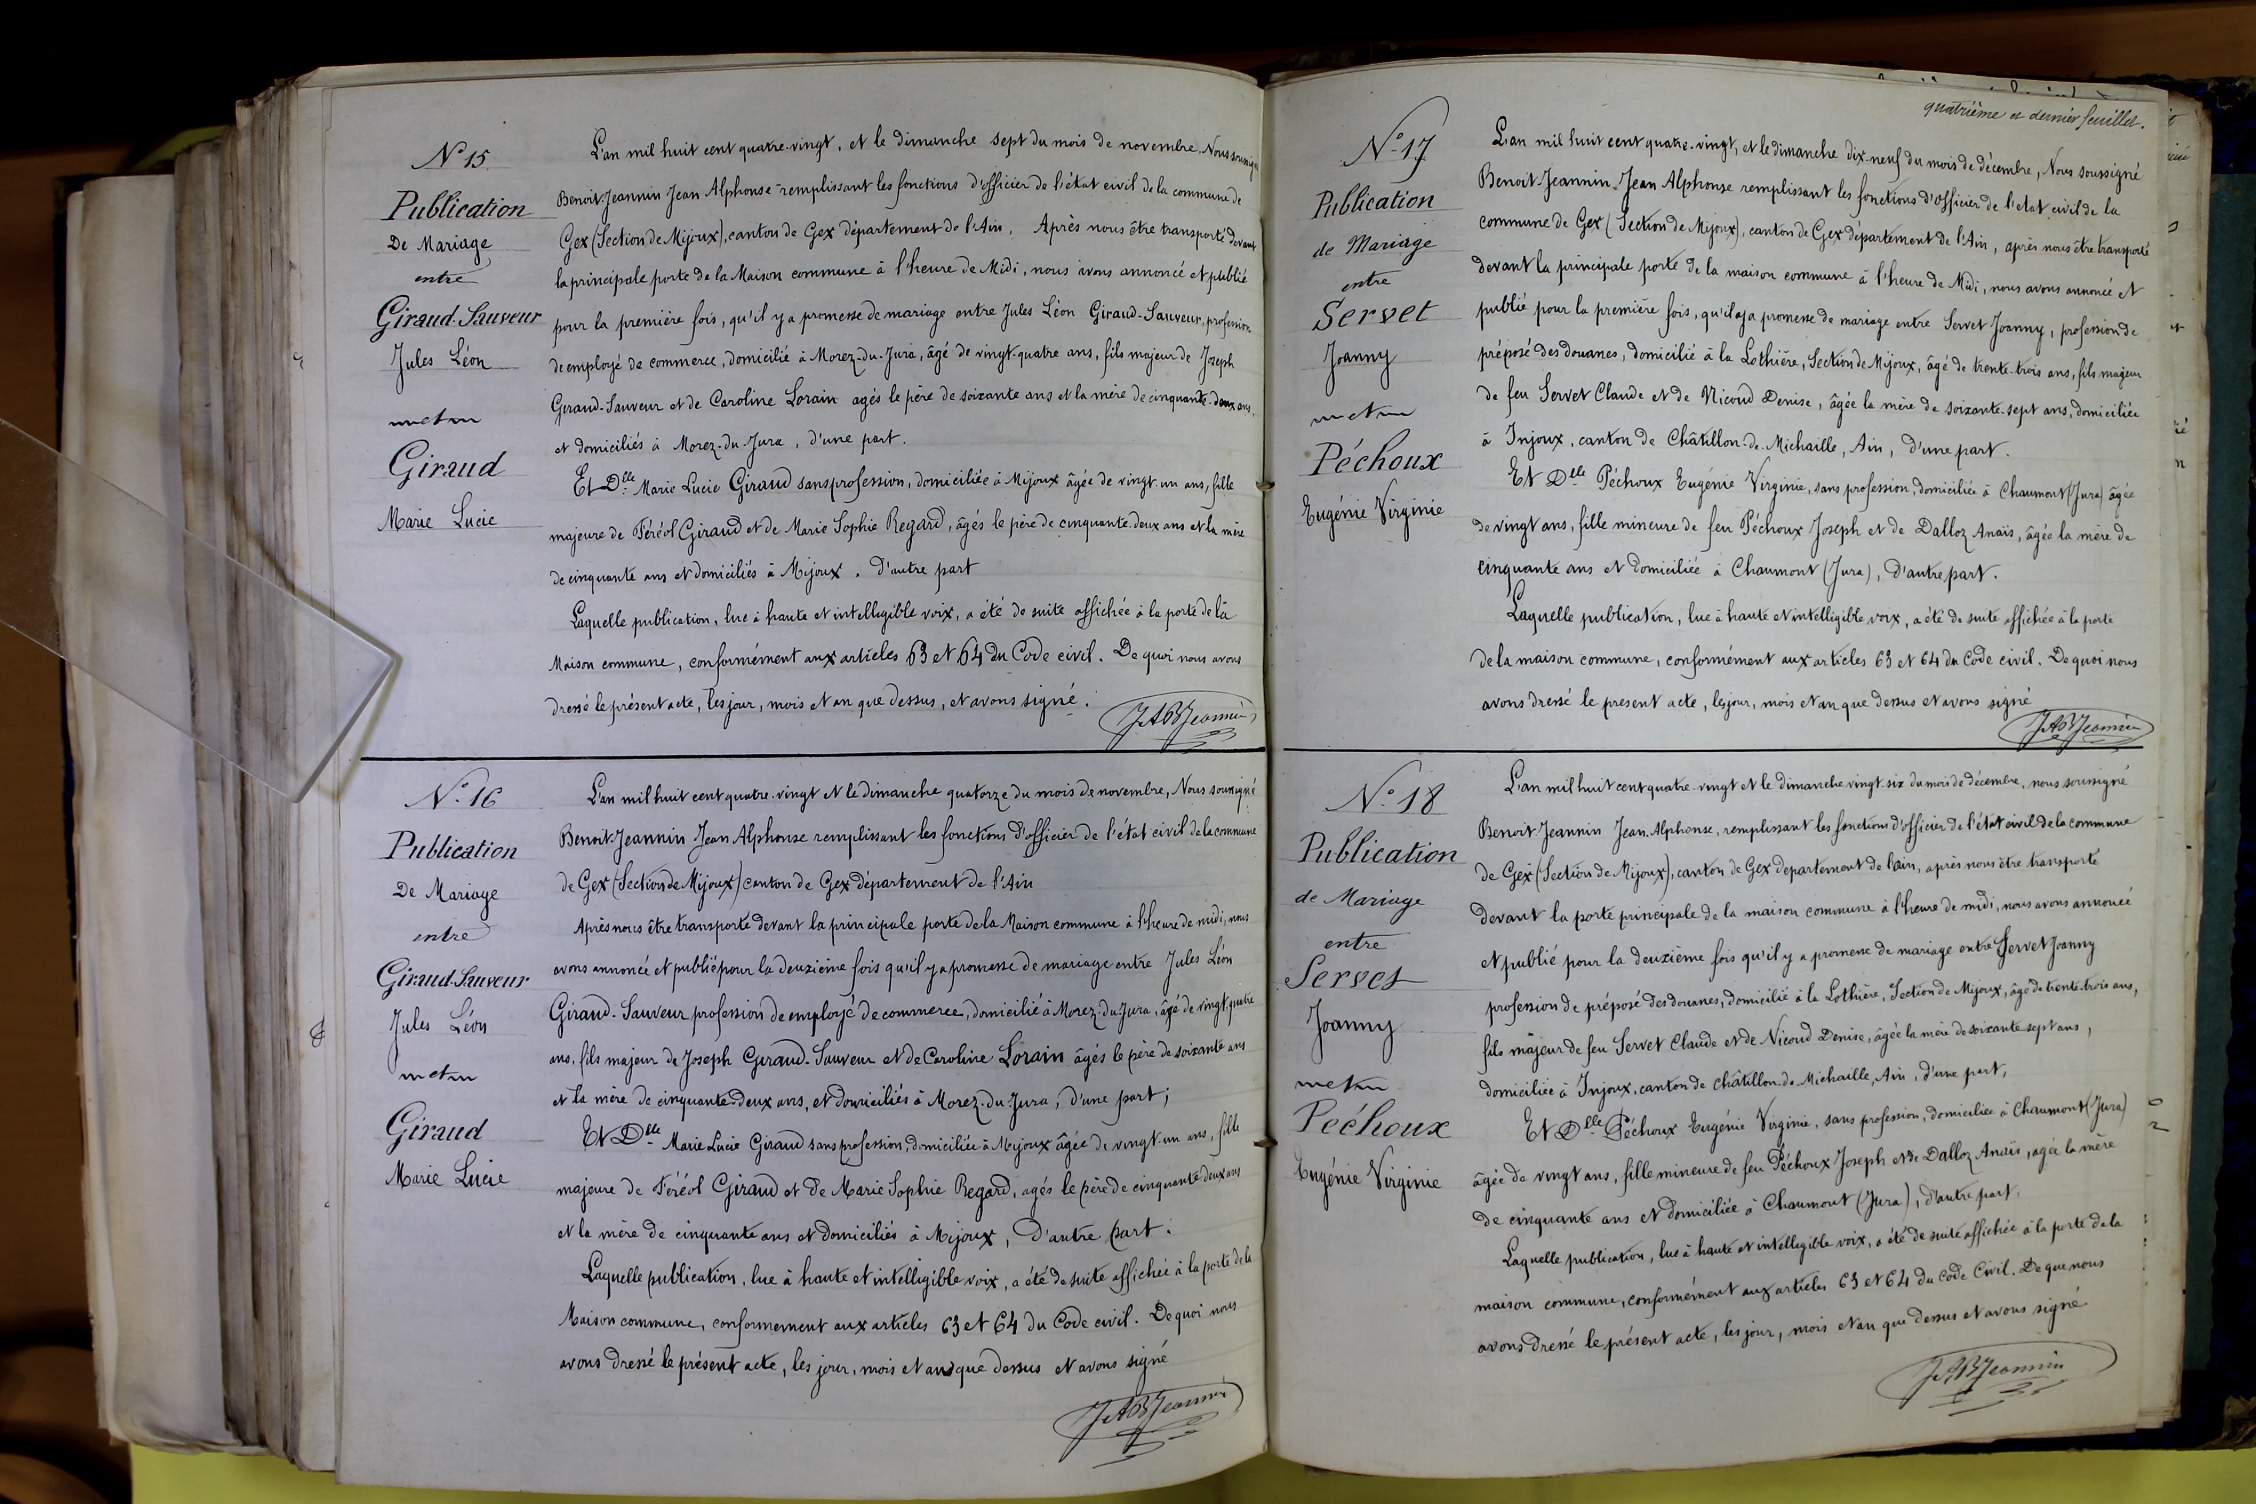 N° 15
Publication
De Mariage
entre
Giraud-Sauveur
Jules Léon
Giraud
Marie Lucie
L'an mil huit cent quatre-vingt, et le dimanche sept du mois de novembre. Nous
Benoit-Jeannin Jean Alphonse remplissant les fonctions d'officier de l'état civil de la commune de
Gex (Section de Mijoux), canton de Gex département de l'Ain. Après nous être transporté devant
la principale porte de la Maison commune à l'heure de Midi, nous avons annoncé et publié
pour la première fois, qu'il y a promesse de mariage entre Jules Léon Giraud-Sauveur, profession
de employé de commerce, domicilié à Morez-du-Jura, âgé de vingt-quatre ans, fils majeur de Joseph
Giraud-Sauveur et de Caroline Lorain agés le père de soixante ans et la mère de cinquante-deux ans,
et domiciliés à Morez-du-Jura, d'une part.
Et Dlle Marie Lucie Giraud sans profession, domiciliée à Mijoux âgée de vingt-un ans, fille
majeure de Féréol Giraud et de Marie Sophie Regard, âgés le père de cinquante-deux ans et la mère
de cinquante ans et domiciliés à Mijoux. d'autre part
Laquelle publication, lue à haute et intelligible voix, a été de suite affichée à la porte de la
Maison commune, conformément aux articles 63 et 64 du Code civil. De quoi nous avons
dressé le présent acte, les jour, mois et an que dessus, et avons signé.
JABJeannin
N° 16
Publication
De Mariage
entre
Giraud-Sauveur
Jules Léon
Giraud
Marie Lucie
L'an mil huit cent quatre-vingt et le dimanche quatorze du mois de novembre, Nous soussigné
Benoit-Jeannin Jean Alphonse remplissant les fonctions d'officier de l'état civil de la commune
de Gex (Section de Mijoux) canton de Gex département de l'Ain
Après nous être transporté devant la principale porte de la Maison commune à l'heure de midi, nous
avons annoncé et publié pour la deuxième fois qu'il y a promesse de mariage entre Jules Léon
Giraud-Sauveur profession de employé de commerce, domicilié à Morez-du-Jura, âgé de vingt-quatre
ans, fils majeur de Joseph Giraud-Sauveur et de Caroline Lorain âgés le père de soixante ans
et la mère de cinquante-deux ans, et domiciliés à Morez-du-Jura, d'une part;
Et Dlle Marie Lucie Giraud sans profession, domiciliée à Mijoux âgée de vingt-un ans, fille
majeure de Féréol Giraud et de Marie Sophie Regard, agés le père de cinquante deux ans
et la mère de cinquante ans et domiciliés à Mijoux, d'autre part.
Laquelle publication, lue à haute et intelligible voix, a été de suite affichée à la porte de la
Maison commune, conformement aux articles 63 et 64 du Code civil. De quoi nous
avons dressé le présent acte, les jour, mois et an que dessus et avons signé
JABJeannin
quatrième et dernier feuillet.
N° 17
Publication
de Mariage
entre
Servet
Joanny
Péchoux
Eugénie Virginie
L'an mil huit cent quatre-vingt, et le dimanche dix-neuf du mois de décembre, Nous soussigné
Benoit-Jeannin Jean Alphonse remplissant les fonctions d'officier de l'état civil de la
commune de Gex (Section de Mijoux), canton de Gex département de l'Ain, après nous être transporté
devant la principale porte de la maison commune à l'heure de Midi, nous avons annoncé et
publié pour la première fois, qu'il y a promesse de mariage entre Servet Joanny, profession de
préposé des douanes, domicilié à la Lothière, Section de Mijoux, âgé de trente-trois ans, fils majeur
de feu Servet Claude et de Nicoud Denise, âgée la mère de soixante-sept ans, domiciliée
à Injoux, canton de Châtillon-de-Michaille, Ain, d'une part.
Et Dlle Péchoux Eugénie Virginie, sans profession, domiciliée à Chaumont (Jura) âgée
de vingt ans, fille mineure de feu Péchoux Joseph et de Dalloz Anaïs, âgée la mère de
cinquante ans et domiciliée à Chaumont (Jura), d'autre part.
Laquelle publication, lue à haute et intelligible voix, a été de suite affichée à la porte
de la maison commune, conformément aux articles 63 et 64 du Code civil. De quoi nous
avons dressé le present acte, les jour, mois et an que dessus et avons signé
JABJeannin
N° 18
Publication
de Mariage
entre
Servet
Joanny
Péchoux
Eugénie Virginie
L'an mil huit cent quatre-vingt et le dimanche vingt-six du mois de décembre, nous soussigné
Benoit-Jeannin Jean-Alphonse, remplissant les fonctions d'officier de l'état civil de la commune
de Gex (Section de Mijoux), canton de Gex département de l'ain, après nous être transporté
devant la porte principale de la maison commune à l'heure de midi, nous avons annoncé
et publié pour la deuxième fois qu'il y a promesse de mariage entre Servet Joanny
profession de préposé des douanes, domicilié à la Lothière, Section de Mijoux, âgé de trente-trois ans,
fils majeur de feu Servet Claude et de Nicoud Denise, âgée la mère de soixante-sept ans,
domiciliée à Injoux, canton de châtillon-de-Michaille, Ain, d'une part,
Et Dlle Péchoux Eugénie Virginie, sans profession, domiciliée à Chaumont (Jura)
âgée de vingt ans, fille mineure de feu Péchoux Joseph et de Dalloz Anaïs, agée la mère
de cinquante ans et domiciliée à Chaumont (Jura), d'autre part.
Laquelle publication, lue à haute et intelligible voix, a été de suite affichée à la porte de la
maison commune, conformément aux articles 63 et 64 du Code Civil. De que nous
avons dressé le présent acte, les jour, mois et an que dessus et avons signé
JABJeannin